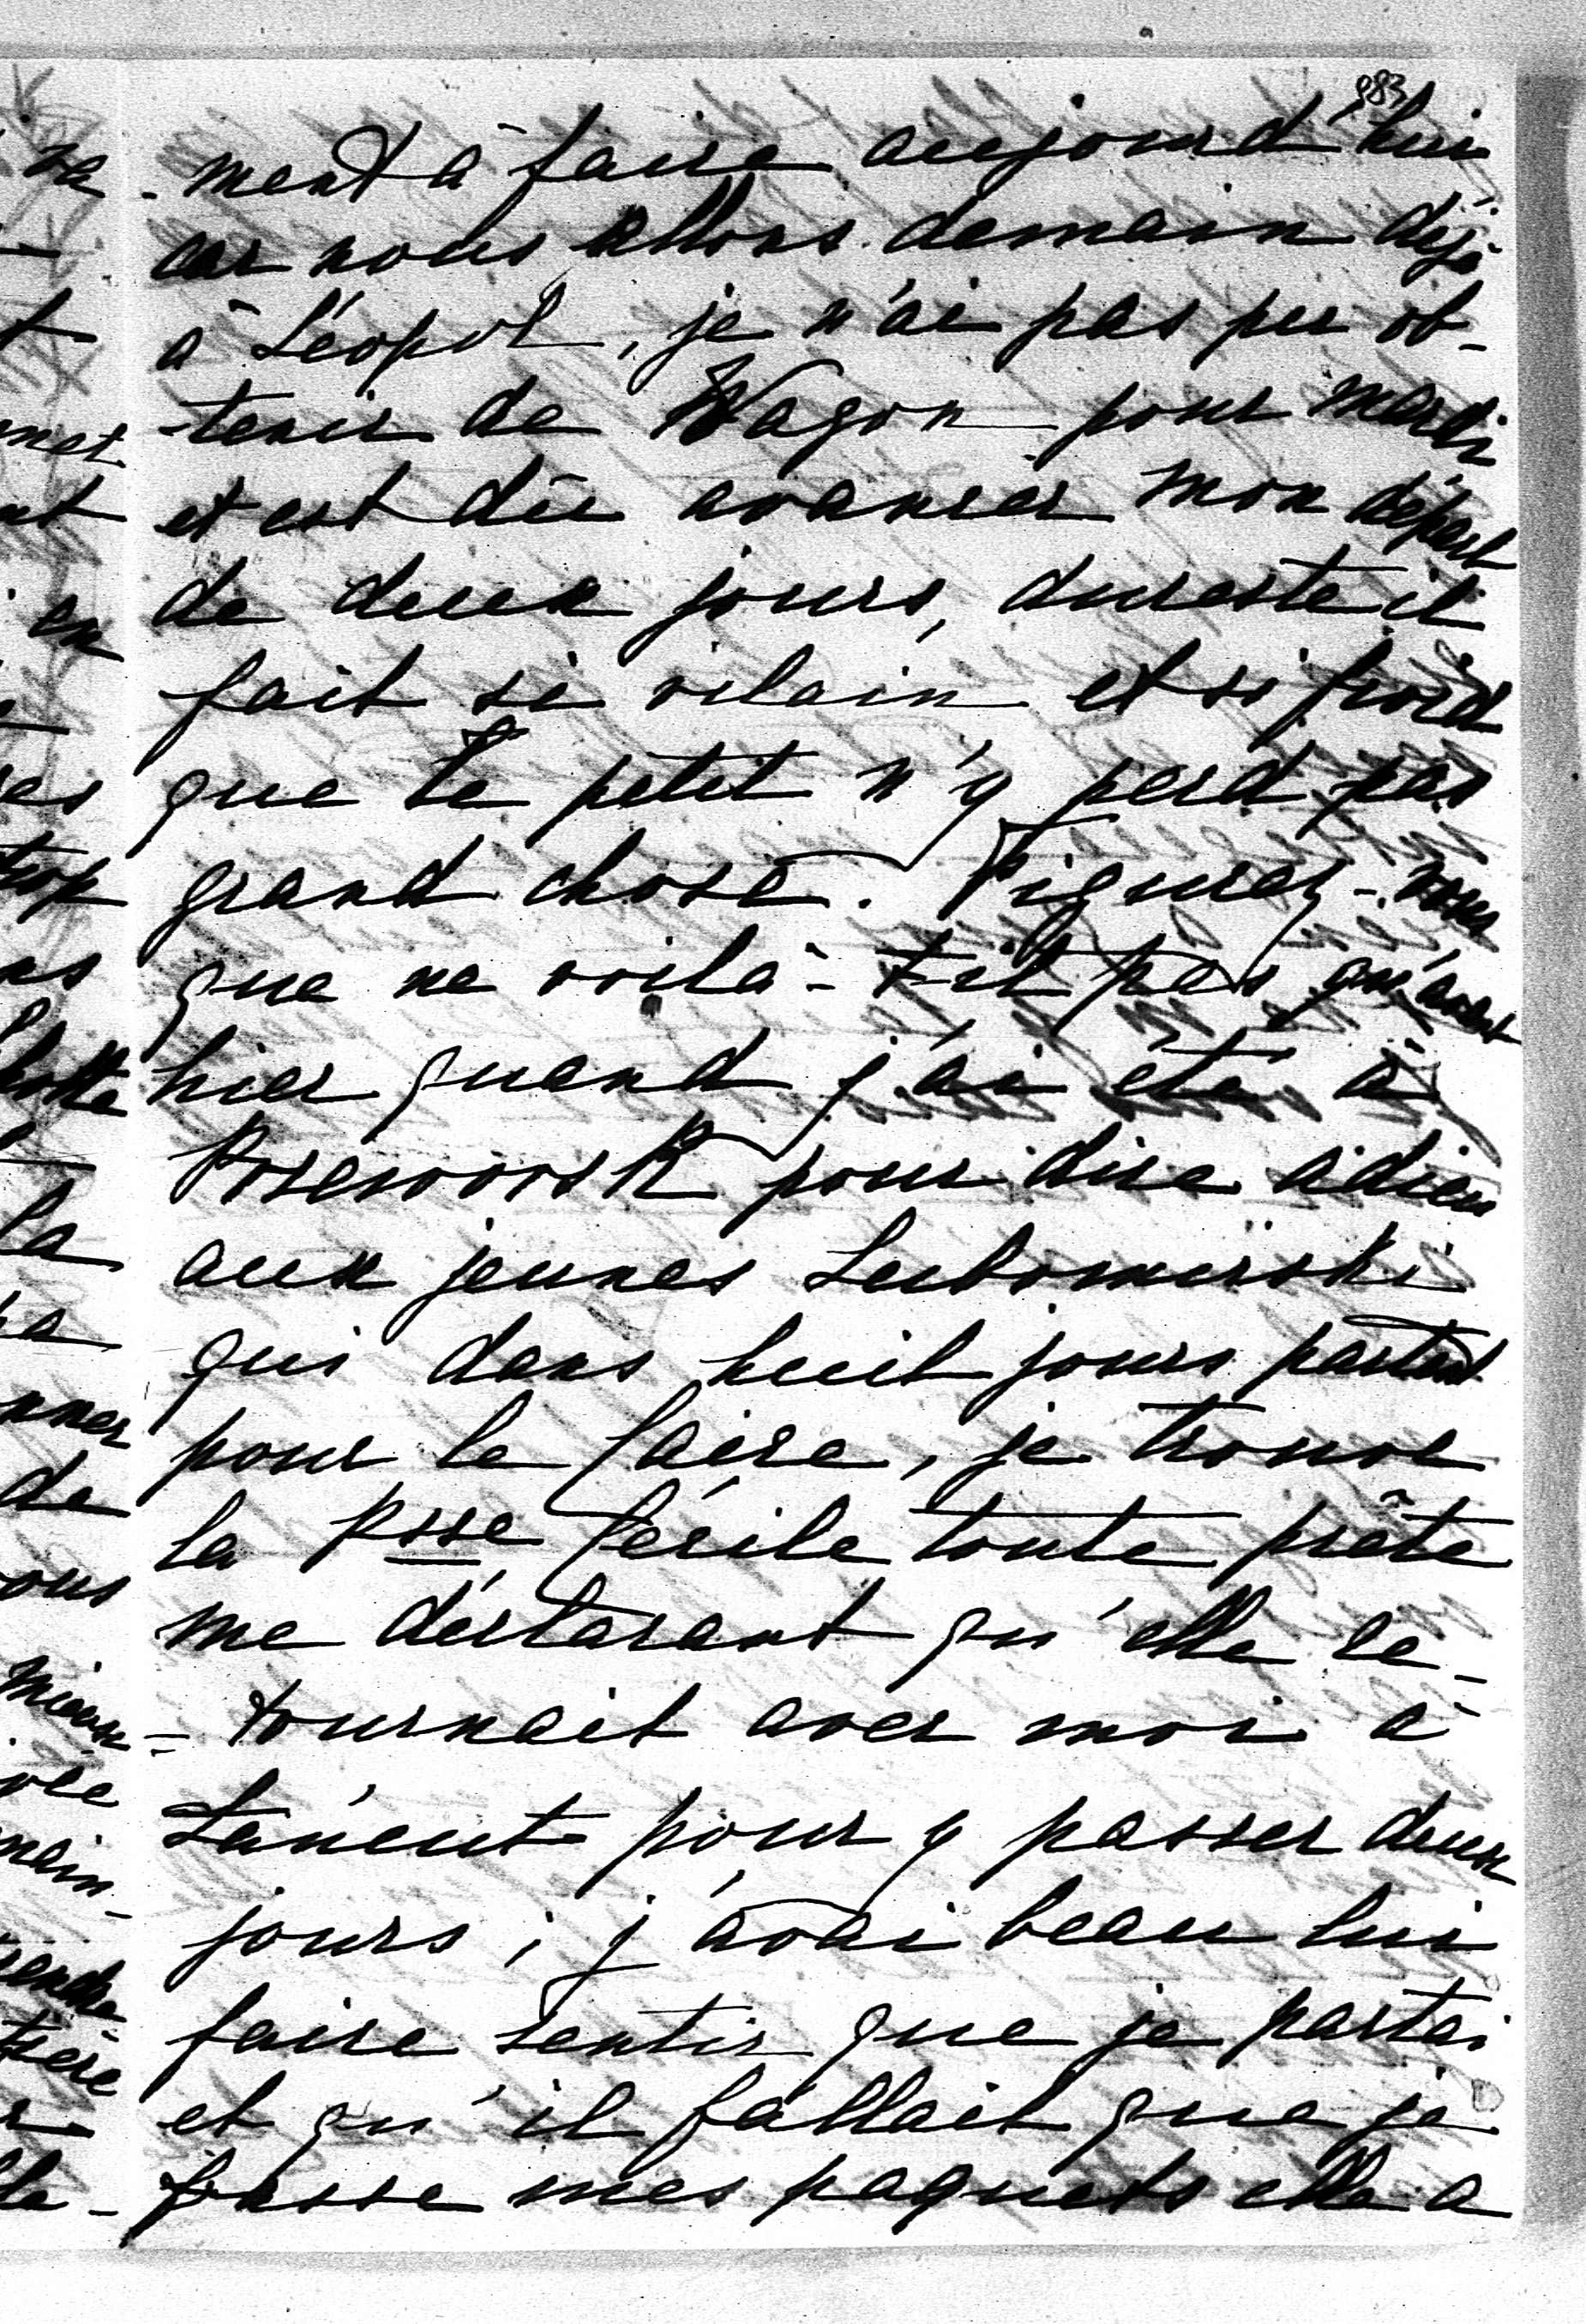 983
- ment à faire aujourd'hui
car nous allons demain déjà
à Léopol, je n'ai pas pu ob-
-tenir de Wagon pour mardi
et est dû avancer mon départ
de deux jours, dureste il
fait si vilain et si froid
que le petit n'y perd pas
grand chose. Figurez-vous
que ne voilà-t-il pas qu'avant
hier quand j'ai été à
pour dire adieu
aux jeunes Lubomirski
qui dans huit jours partent
pour le Caire, je trouve
la Psse Cécile toute prête
me déclarant qu'elle re-
- tournait avec moi à
Łańcut pour y passer deux
jours ; j'avai beau lui
faire sentir que je partai
et qu'il fallait que je
fasse mes paquets elle a